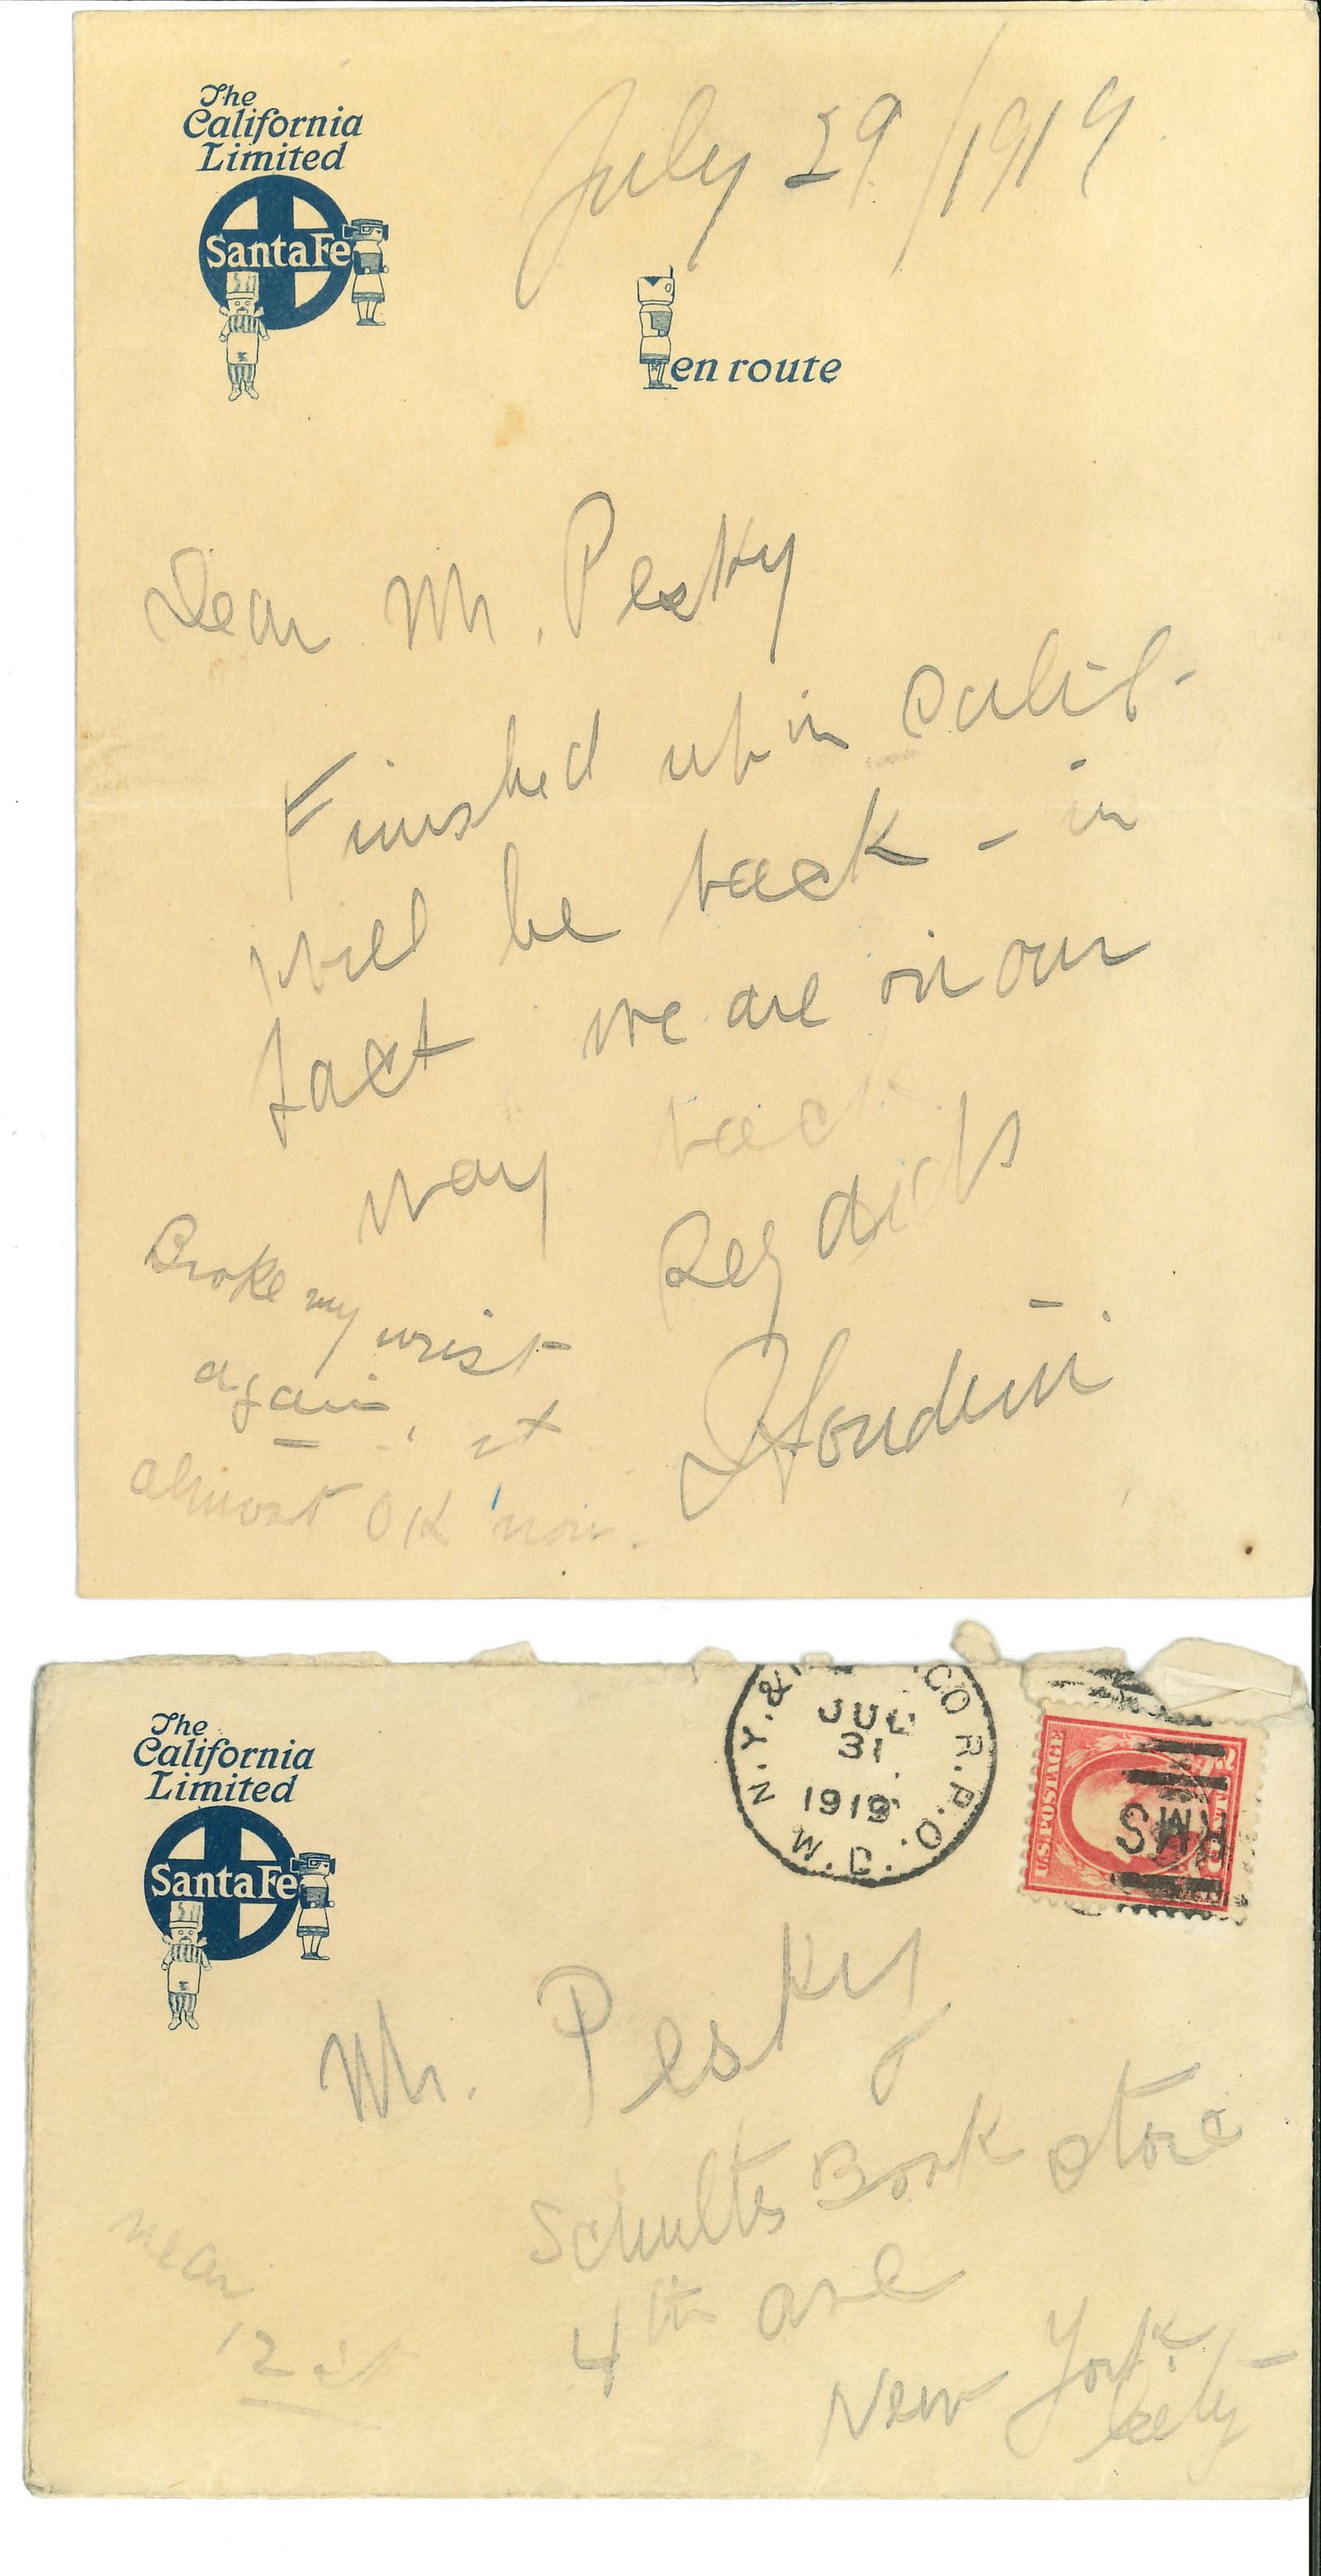 The
California
Limited
Santa Fe
July 29/1919
en route
Dear Mr. Pesky
Finished up in Calif-
Will be back - in
fact we are on our
way back
Regards
Houdini
Broke my wrist
again, it
almost OK now.
The
California
Limited
Santa Fe
N.Y. & CO R.P.O.
JUL
31
1919
W.D.
U.S. POSTAGE
RMS
Mr. Pesky
Schultes Book Store
4th ave
New York
City
near
12 st